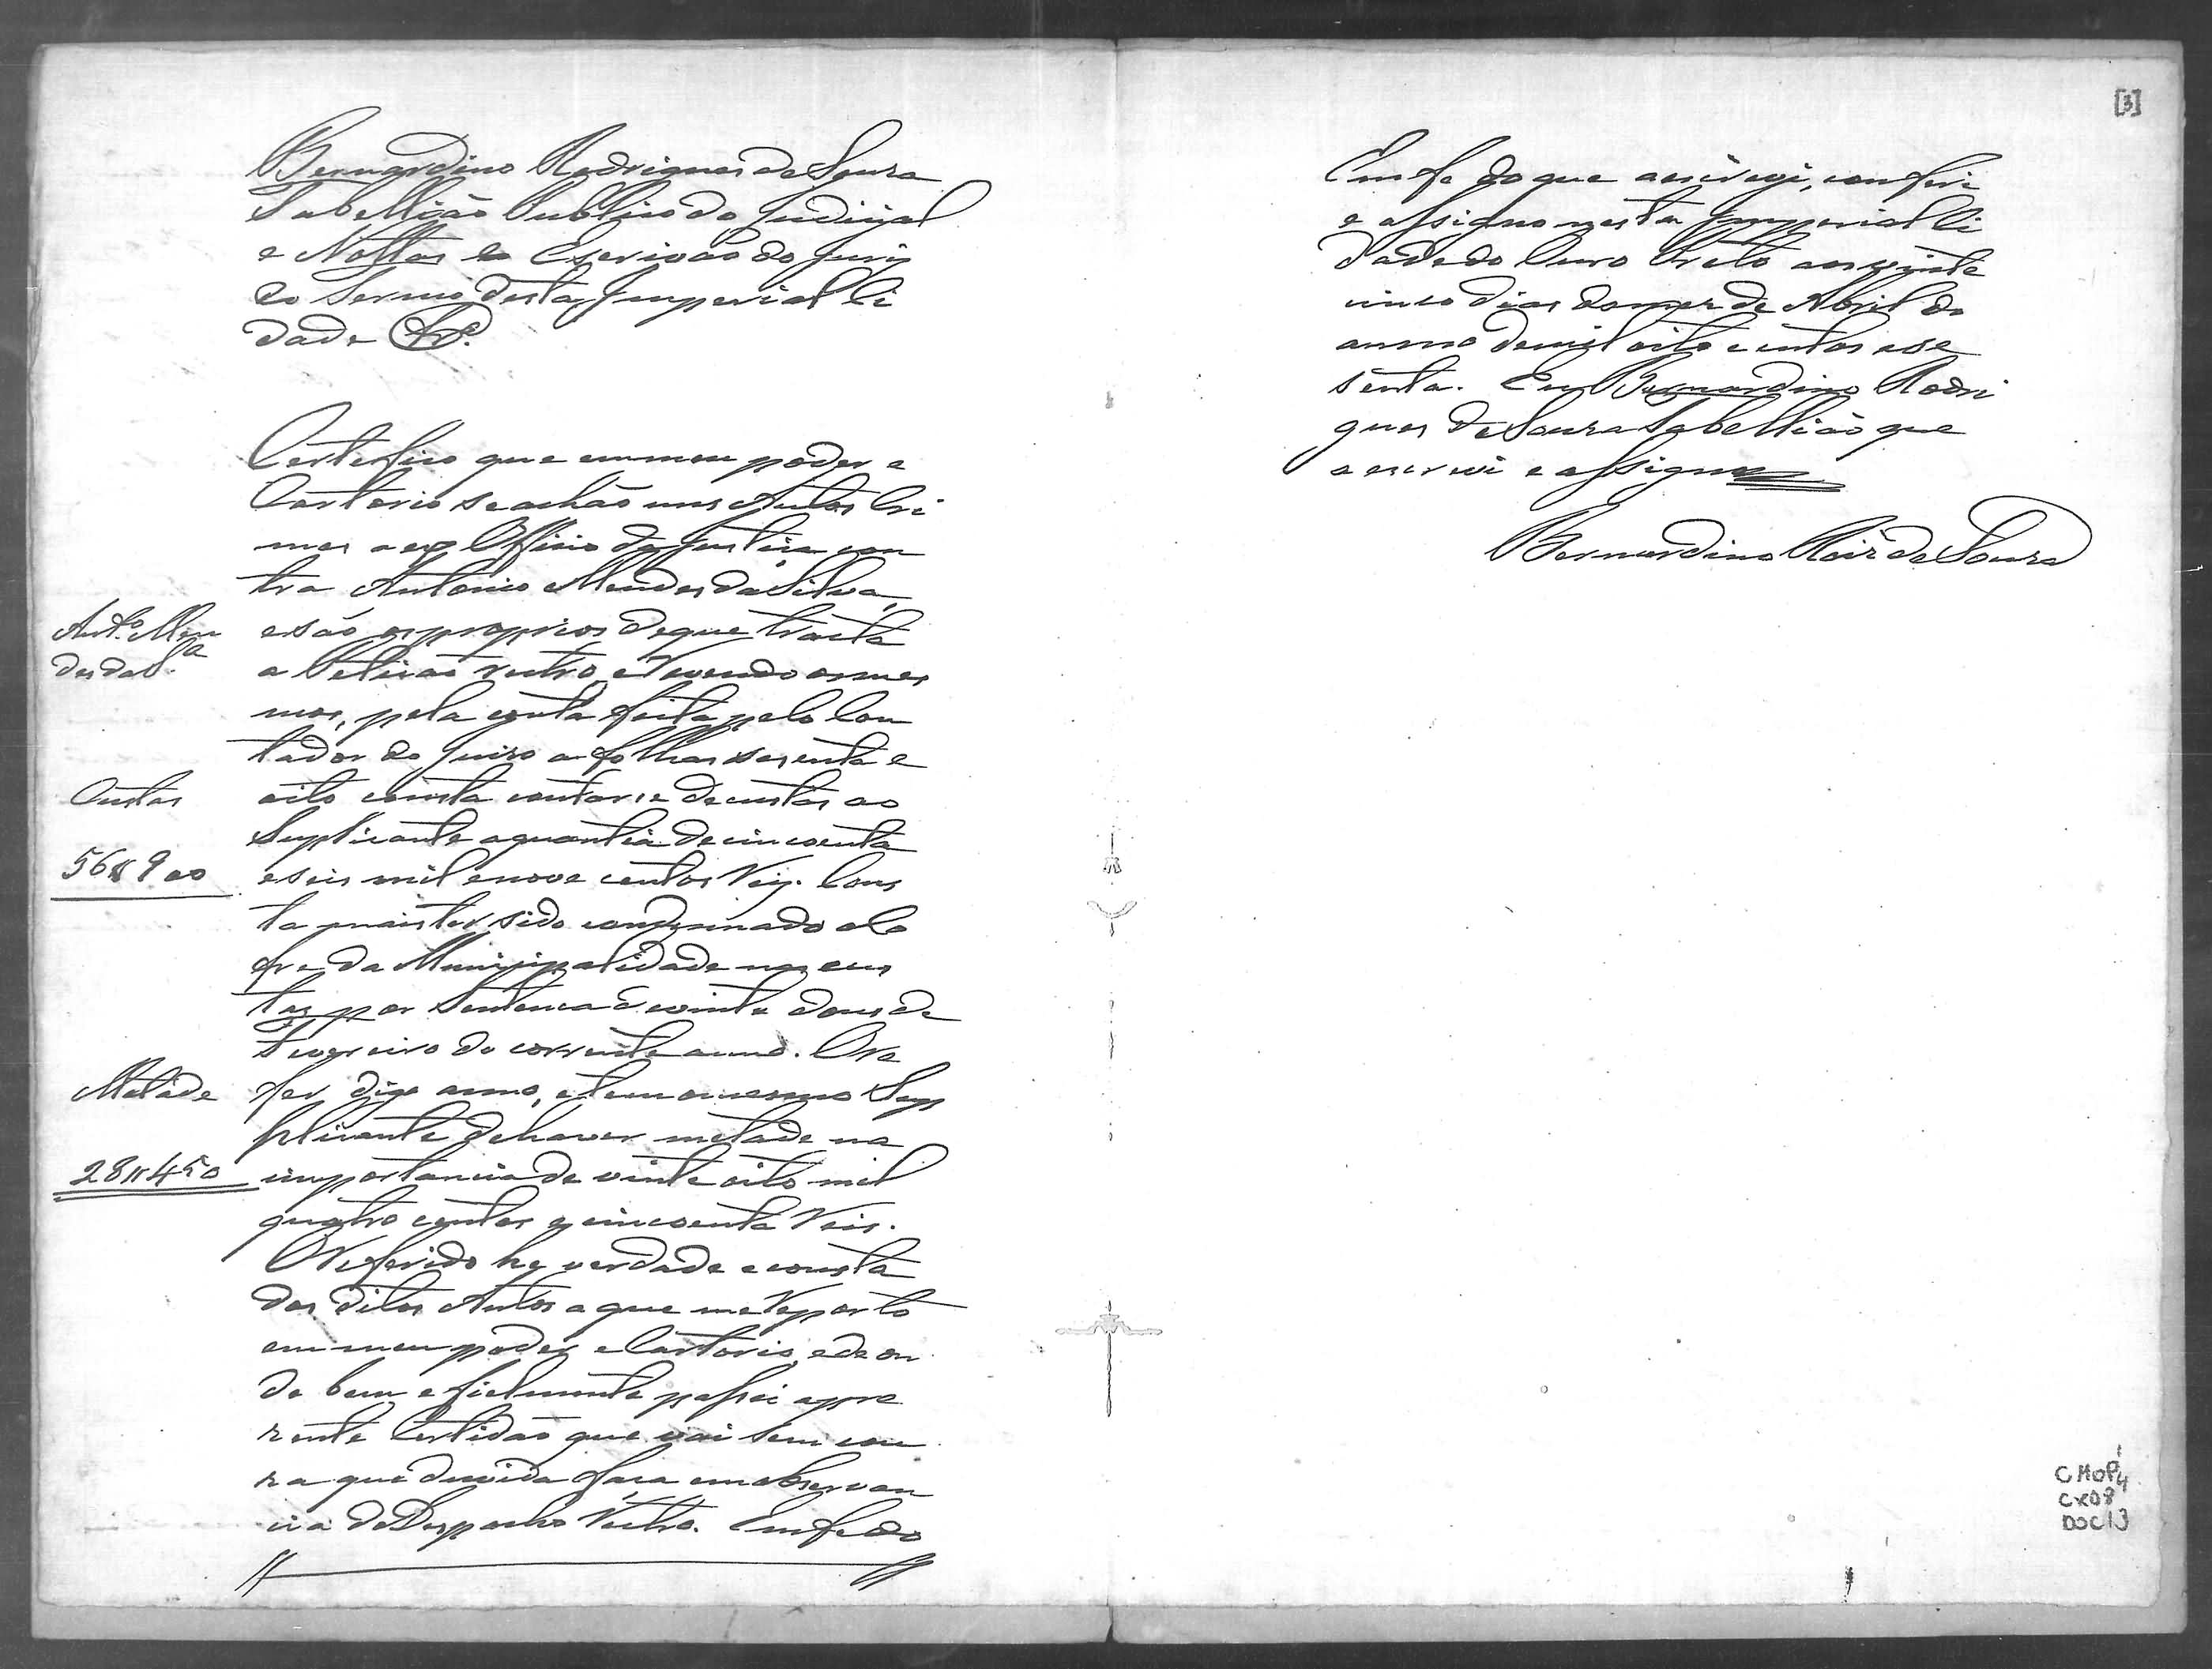 Bernardino Rodrigues de Souza
Tabellião Publico do Judicial
e Nottas e Escrivão do Jury
do Termo desta Imperial Ci
dade &ª.
Certefico que em meu poder e
Cartorio se achão uns Autos Cri
mes a ex Officio da Justiça con
tra Antonio Mendes da Silva,
e são os proprios de que tracta
a Petição retro, e revendo os mes
mos, pela conta feita pelo Con
tador do Juizo a folhas secenta e
oito consta contar-se de custas ao
Supplicante a quantia de cincoenta
e seis mil e nove centos Reis. Cons
ta mais ter sido condemnado o Co
fre da Municipalidade nas cus
tas por Sentença de vinte dous de
Fevereiro do corrente anno. Ora
fer digo anno, e tem o mesmo Sup
plicante de haver metade na
importancia de vinte oito mil
quatro centos e cincoenta Reis.
O Referido he verdade e consta
dos ditos Autos a que me reporto
em meu poder e Cartorio, e de on
de bem e fielmente passei a pre
zente Certidão que vai sem cou
za que duvida faça em observan
cia do Despacho retro. Em fe do
Antº. Men
des da Sª.
Custas
56$900
Metade
28$450
[3]
Em fe do que a escrevi, conferi
e assigno nesta Imperial Ci
dade do Ouro Preto aos vinte
cinco dias do mez de Abril do
anno de mil oito centos e se
senta. Eu Bernardino Rodri
gues de Souza Tabellião que
a escrevi e assigno
Bernardino Roiz de Souza
CMOP
CX08
DOC13